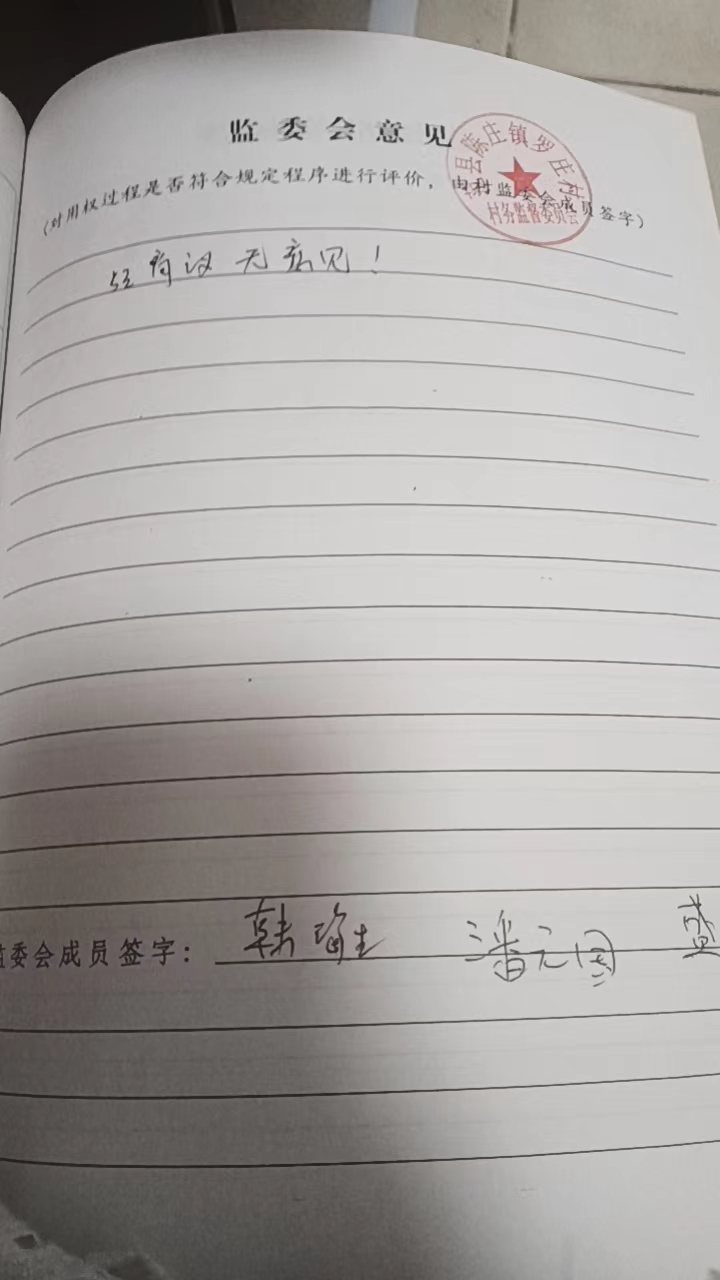 监委会意见
(对用权过程是否符合规定程序进行评价，由村监委会成员签字)
县陈庄镇罗庄村
村务监督委员会
经商议无意见！
监委会成员签字：韩瑞生 潘元国 盛